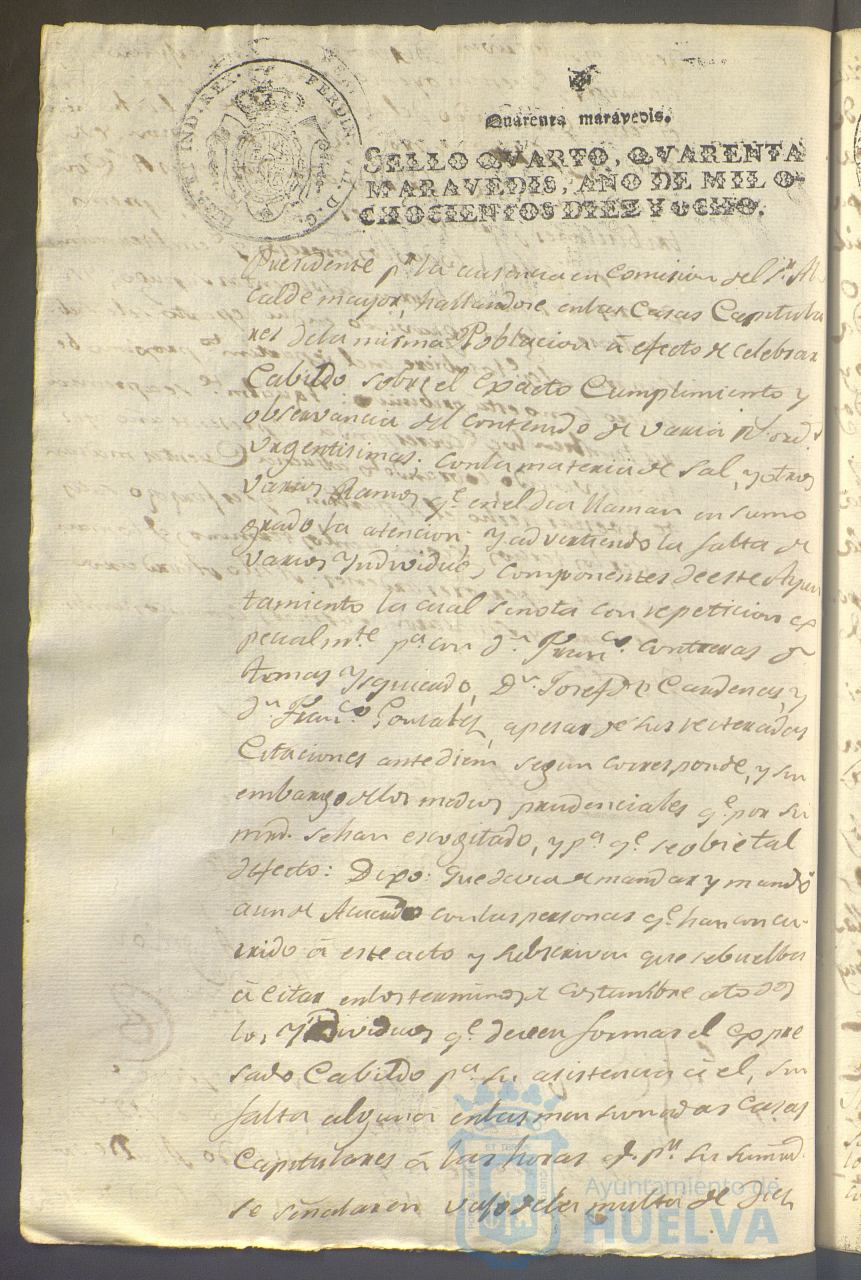 HISP. ET IND. REX. FERDIN. VII. D. G.
Quarenta maravedis.
SELLO QVARTO, QVARENTA
MARAVEDIS, AÑO DE MIL O-
CHOCIENTOS DIEZ Y OCHO.
Presidente pr. la ausencia en Comision del Sr. Al
calde mayor, hallandose en las Casas Capitula
res de la misma Poblacion á efecto de celebrar
Cabildo sobre el exacto Cumplimiento y
observancia del Contenido de varias rs. ords.
urgentisimas. con la materia de Sal, y otros
varios Ramos qe. en el dia llaman en sumo
grado la atencion; Y advirtiendo la falta de
varios Yndividuos, componentes de este Ayun
tamiento la cual se nota con repeticion es
pecialmte. pa. con Dn. Franco. Contreras Dn.
tomas Ysquierdo, Dn. Josef de Cardenas, y
Dn. Franco. Gonzalez, apesar de sus reiteradas
Citaciones antediem segun corresponde, y sin
embargo de los medios prudenciales qe. por su
mrd. se han escogitado, y pa. qe. se obie tal
defecto: Dixo: que devia de mandar y mandó
aun de Acuerdo con las personas qe. han concu-
rrido á este acto y subscriven que se buelba
á citar en los terminos de costumbre a todos
los Yndividuos qe. deven formar el expre
sado Cabildo pa. su asistencia á el, sin
falta alguna en las mensionadas Casas
Capitulares á las horas qe. pr. su mrd.
se señalaren vajo de la multa de Diez
Ayuntamiento de
HUELVA